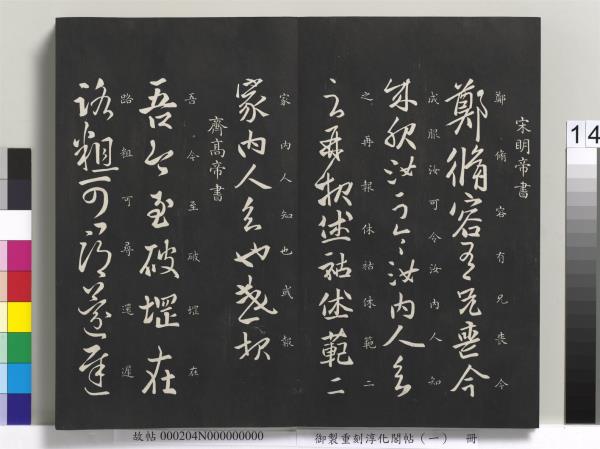 宋明帝書
鄭脩容有兄喪今
鄭脩容有兄喪今
成服汝可令汝内人知
成服汝可令汝内人知
之再報休祐休範二
之再報休祐休範二
家内人知也或報
家内人知也或報
齊高帝書
吾今至破堽在
吾今至破堽在
路粗可尋還遲
路粗可尋還遲
14
故帖 000204N000000000
御製重刻淳化閣帖（一） 冊